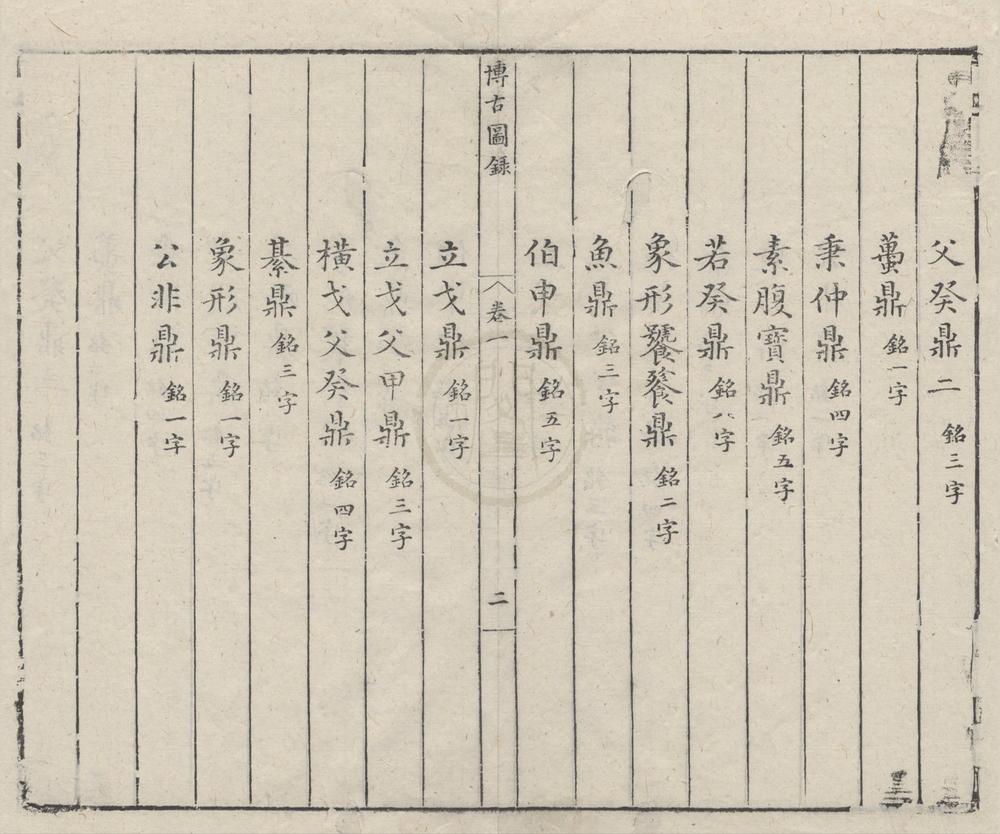 父癸鼎二 銘三字
蠆鼎 銘一字
秉仲鼎 銘四字
素腹寶鼎 銘五字
若癸鼎 銘八字
象形饕餮鼎 銘二字
魚鼎 銘三字
伯申鼎 銘五字
博古圖錄 卷一 二
立戈鼎 銘一字
立戈父甲鼎 銘三字
橫戈父癸鼎 銘四字
綦鼎 銘三字
象形鼎 銘一字
公非鼎 銘一字